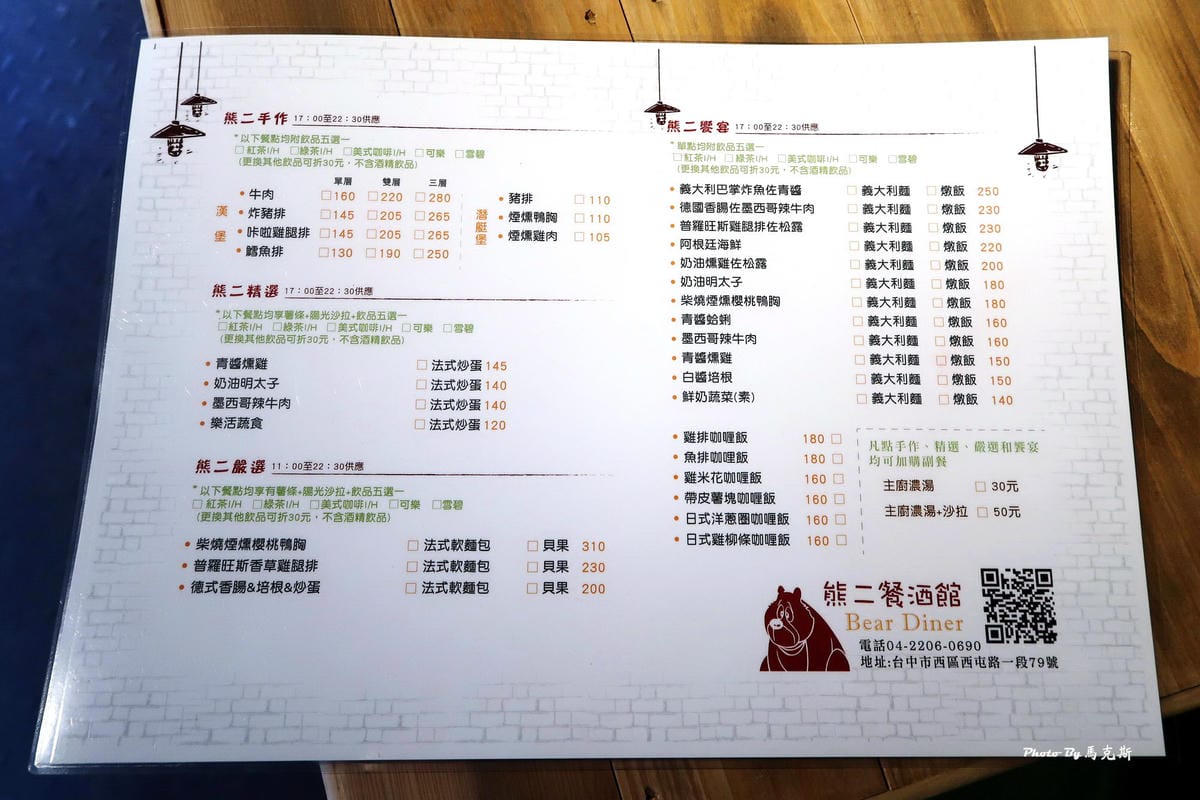 熊二手作 17:00至22:30供應
*以下餐點均附飲品五選一
□紅茶I/H □綠茶I/H □美式咖啡I/H □可樂 □雪碧
(更換其他飲品可折30元，不含酒精飲品)
單層 雙層 三層
漢堡
• 牛肉 □160 □220 □280
• 炸豬排 □145 □205 □265
• 咔啦雞腿排 □145 □205 □265
• 鱈魚排 □130 □190 □250
潛艇堡
• 豬排 □ 110
• 煙燻鴨胸 □ 110
• 煙燻雞肉 □ 105
熊二精選 17:00至22:30供應
*以下餐點均享薯條+陽光沙拉+飲品五選一
□紅茶I/H □綠茶I/H □美式咖啡I/H □可樂 □雪碧
(更換其他飲品可折30元，不含酒精飲品)
• 青醬燻雞 □ 法式炒蛋 145
• 奶油明太子 □ 法式炒蛋 140
• 墨西哥辣牛肉 □ 法式炒蛋 140
• 樂活蔬食 □ 法式炒蛋 120
熊二嚴選 11:00至22:30供應
*以下餐點均享有薯條+陽光沙拉+飲品五選一
□紅茶I/H □綠茶I/H □美式咖啡I/H □可樂 □雪碧
(更換其他飲品可折30元，不含酒精飲品)
• 柴燒煙燻櫻桃鴨胸 □ 法式軟麵包 □ 貝果 310
• 普羅旺斯香草雞腿排 □ 法式軟麵包 □ 貝果 230
• 德式香腸&培根&炒蛋 □ 法式軟麵包 □ 貝果 200
熊二饗宴 17:00至22:30供應
*單點均附飲品五選一
□紅茶I/H □綠茶I/H □美式咖啡I/H □可樂 □雪碧
(更換其他飲品可折30元，不含酒精飲品)
• 義大利巴掌炸魚佐青醬 □ 義大利麵 □ 燉飯 250
• 德國香腸佐墨西哥辣牛肉 □ 義大利麵 □ 燉飯 230
• 普羅旺斯雞腿排佐松露 □ 義大利麵 □ 燉飯 230
• 阿根廷海鮮 □ 義大利麵 □ 燉飯 220
• 奶油燻雞佐松露 □ 義大利麵 □ 燉飯 200
• 奶油明太子 □ 義大利麵 □ 燉飯 180
• 柴燒煙燻櫻桃鴨胸 □ 義大利麵 □ 燉飯 180
• 青醬蛤蜊 □ 義大利麵 □ 燉飯 160
• 墨西哥辣牛肉 □ 義大利麵 □ 燉飯 160
• 青醬燻雞 □ 義大利麵 □ 燉飯 150
• 白醬培根 □ 義大利麵 □ 燉飯 150
• 鮮奶蔬菜(素) □ 義大利麵 □ 燉飯 140
• 雞排咖哩飯 180 □
• 魚排咖哩飯 180 □
• 雞米花咖哩飯 160 □
• 帶皮薯塊咖哩飯 160 □
• 日式洋蔥圈咖哩飯 160 □
• 日式雞柳條咖哩飯 160 □
凡點手作、精選、嚴選和饗宴
均可加購副餐
主廚濃湯 □ 30元
主廚濃湯+沙拉 □ 50元
熊二餐酒館
Bear Diner
電話04-2206-0690
地址:台中市西區西屯路一段79號
Photo By 馬克斯